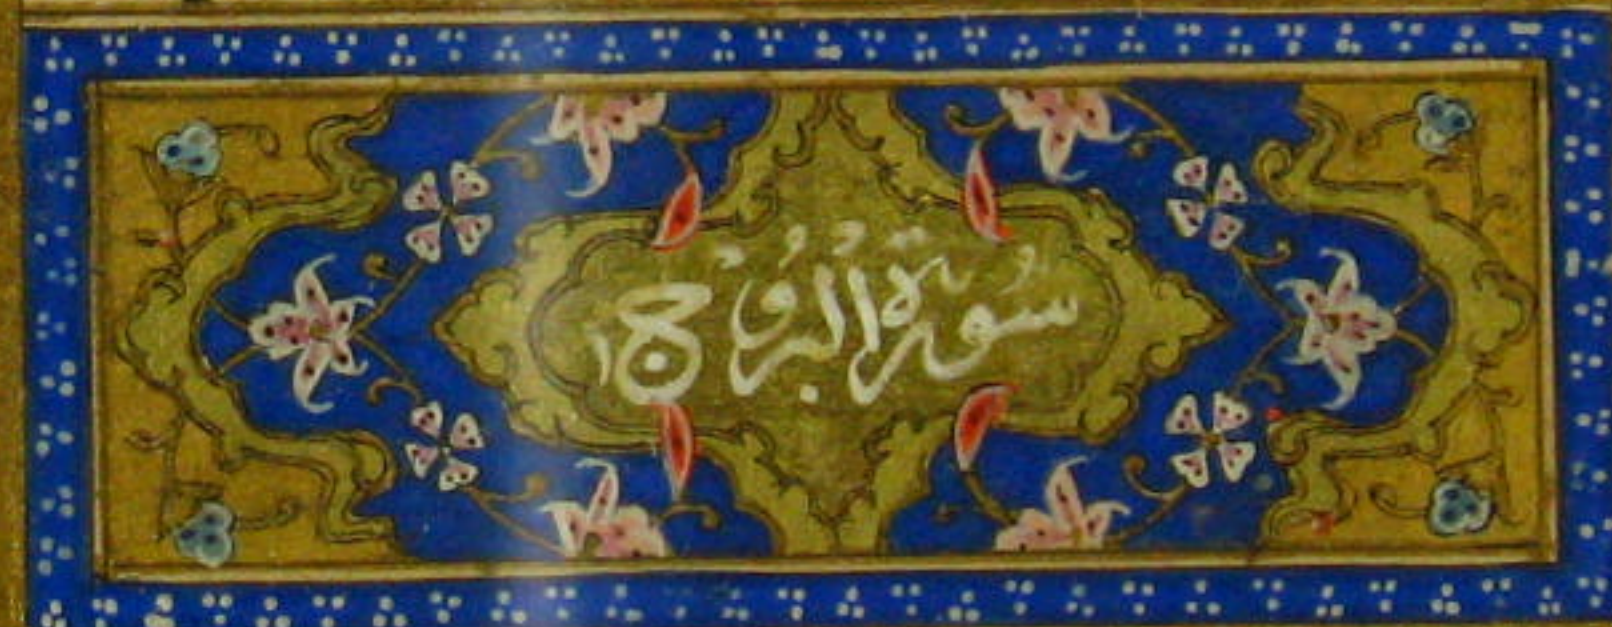 سُورَةُ الْبُرُوجِ